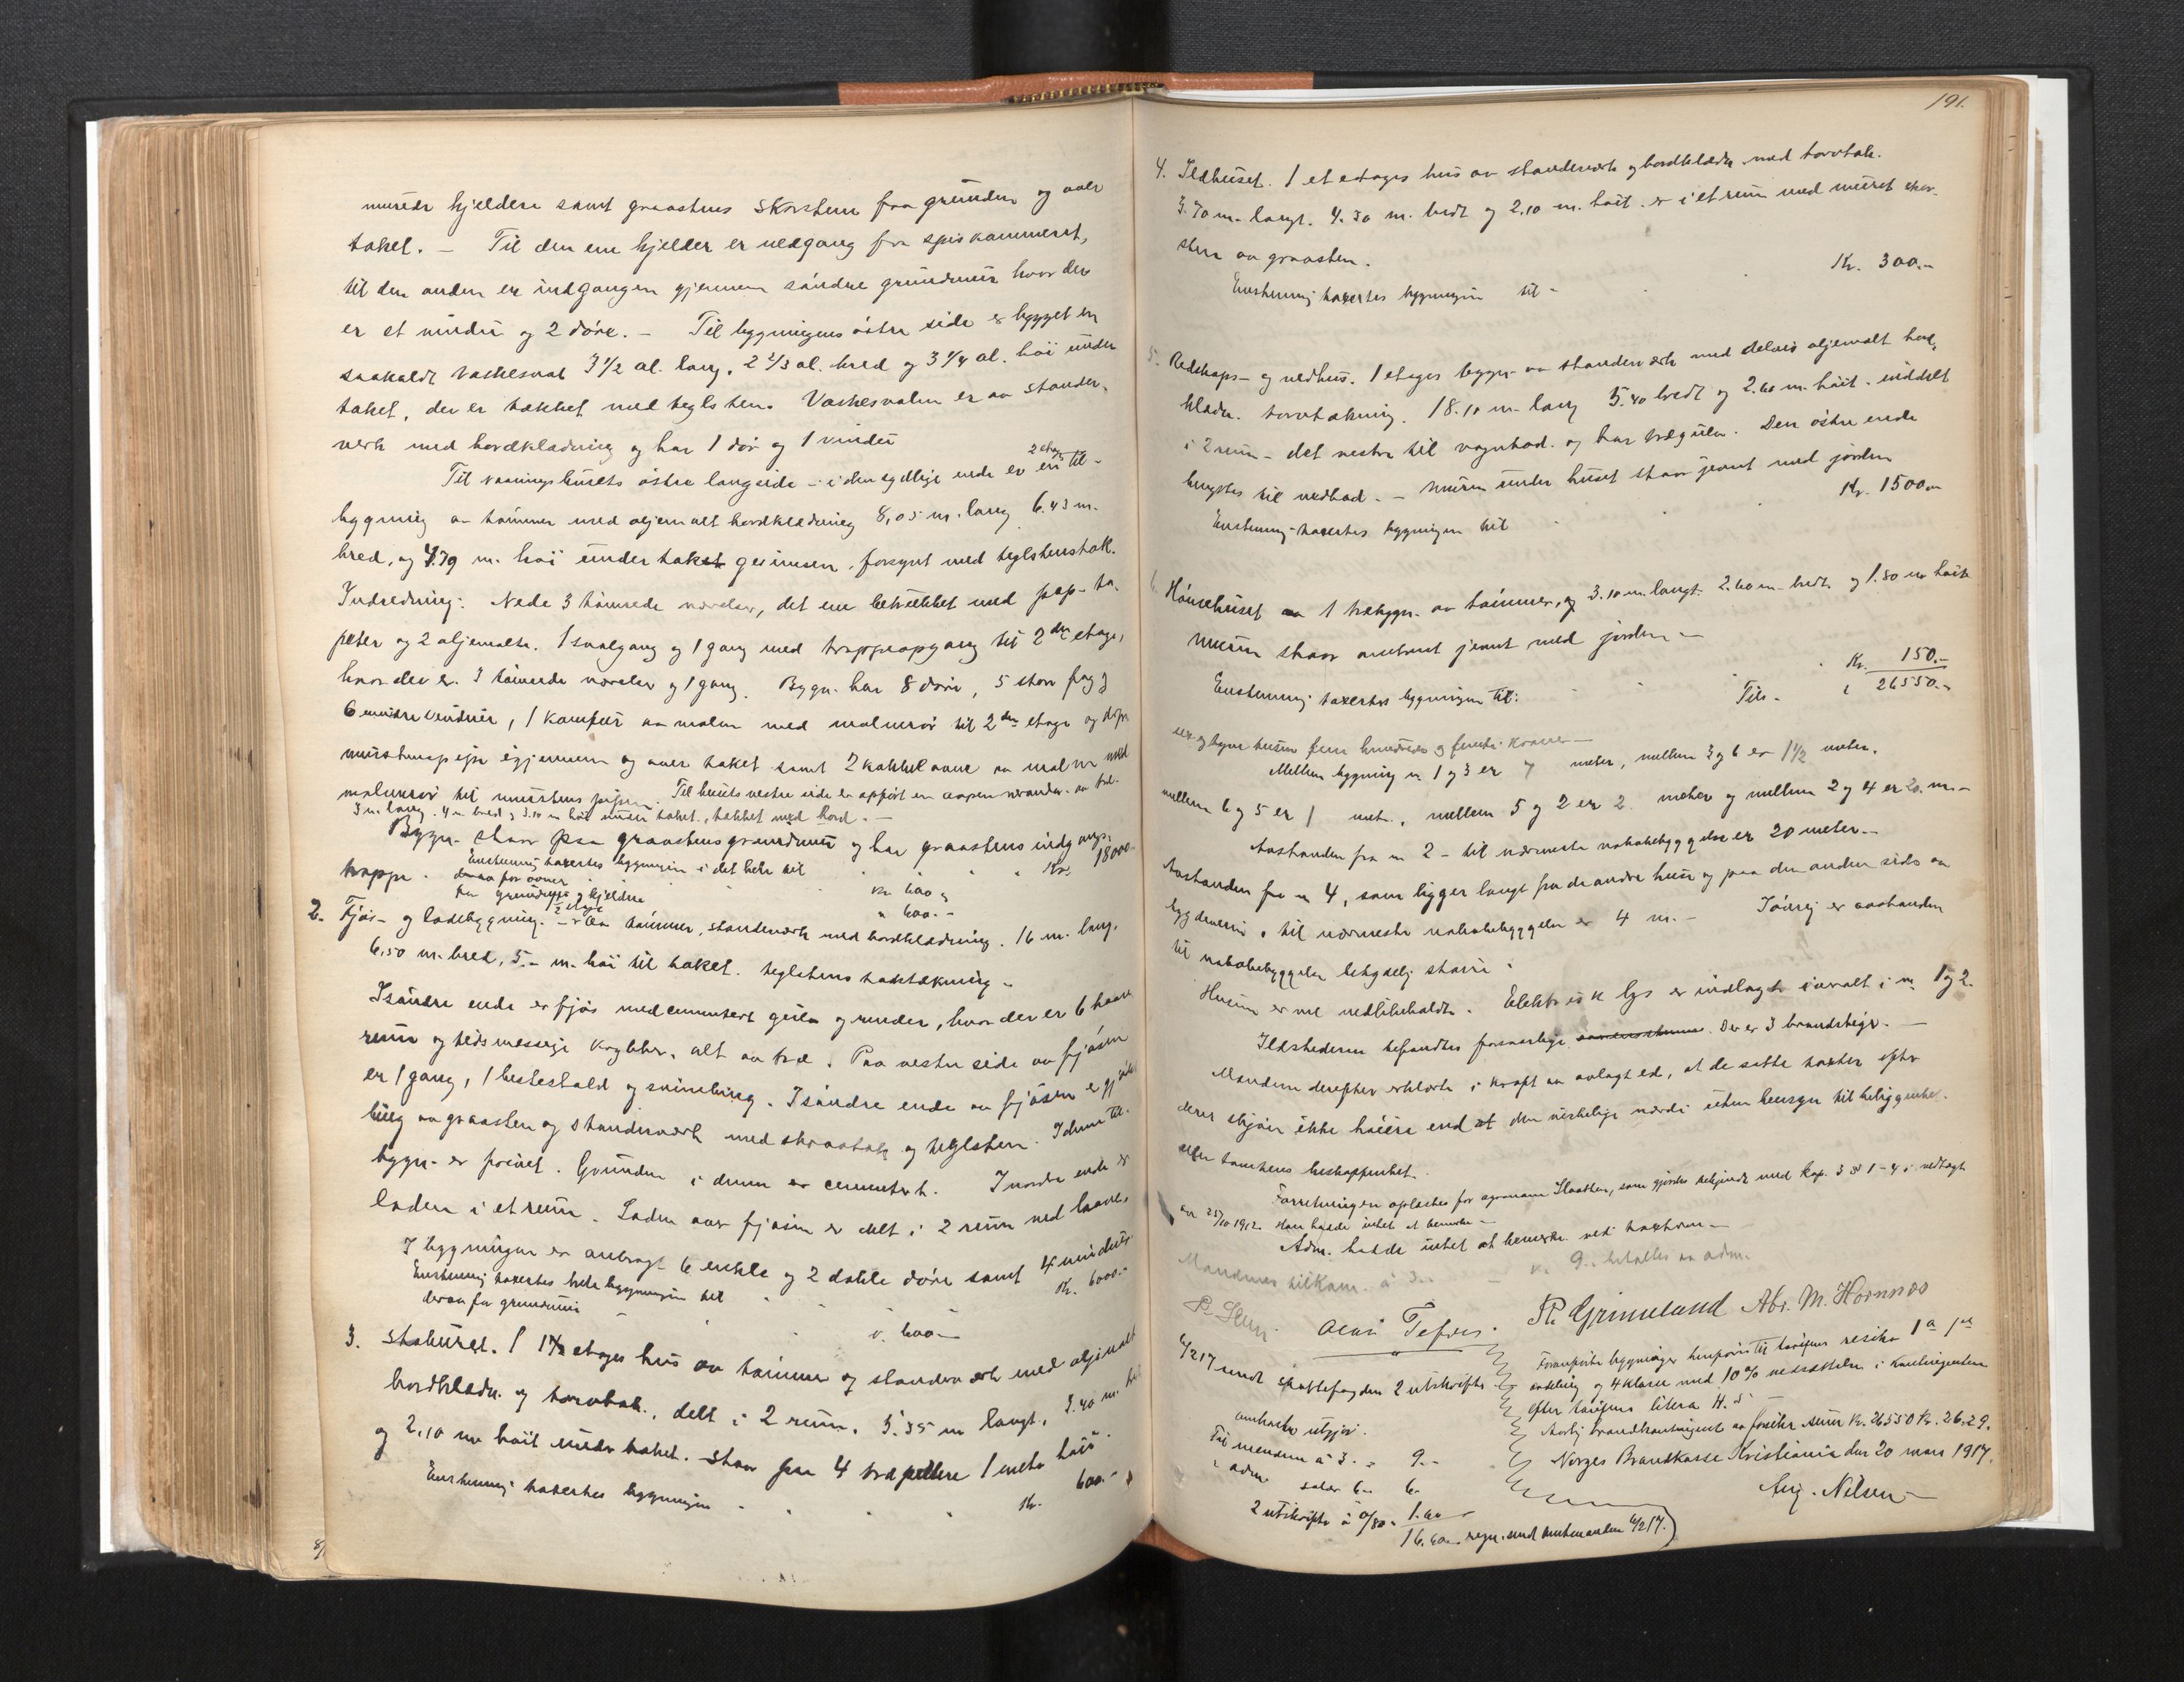 murede kjeldere samt graastens skorsten fra grunden og over
taket. — Til den ene kjelder er nedgang fra spiskammeret,
til den anden er indgangen gjennem søndre grundmur hvor der
er et vindu og 2 døre. — Til bygningens østre side er bygget en
saakaldt vaskesval 3 1/2 al. lang, 2 2/3 al. bred og 3 1/4 al. høi under
taket, der er tækket med teglsten. Vaskesvalen er av stander-
verk med bordklædning og har 1 dør og 1 vindu
2 etag.
Til vaaningshusets østre langside – i den sydlige ende er en til-
bygning av tømmer med oljemalt bordklædning 8,05 m. lang 6.43 m.
bred, og 4.79 m. høi under gesimsen, forsynt med teglstenstak.
Indredning: Nede 3 tømrede værelser, det ene betrukket med pap-ta-
peter og 2 oljemalte. 1 svalgang og 1 gang med trappeopgang til 2den etage,
hvor der er 3 tømrede værelser og 1 gang. Bygn. har 8 døre, 5 store fag og
6 mindre vinduer, 1 komfur av malm med malmrør til 2den etage og
murstenspipe igjennem og over taket samt 2 kakkelovne av malm med
malmrør til murstens pipen. Til husets vestre side er opført en aapen veranda av træ.
3 m lang. 4 m bred og 3.10 m høi under taket, tækket med bord. —
Bygn. staar paa graastensgrundmur og har graastens indgangs-
trappe.
Enstemmig taxertes bygningen i det hele til Kr. 18000.
derav for ovner kr 600,
for grundmur og kjeldere " 600.–
2. Fjøs- og ladebygning. – 2 etage Av tømmer, standerværk med bordklædning. 16 m. lang.
6,50 m. bred, 5.– m. høi til taket. Teglstens taktækning –
I søndre ende er fjøs med cementert gulv og render, hvor der er 6 baase
rum og tidsmessige krybber, alt av træ. Paa vestre side av fjøsen
er 1 gang, 1 hestestald og svinebing. I søndre ende av fjøsen er
av graasten og standerværk med skraatak og teglsten. I denne til-
bygn. er privet. Grunden i denne er cementert. I nordre ende er
laden i et rum. Laden over fjøsen er delt i 2 rum med laave.
I bygningen er anbragt 6 enkle og 2 doble døre samt 4 vinduer
Enstemmig taxertes hele bygningen til Kr. 6000.–
derav for grundmur kr. 600.–
3. Stabburet. 1 1 1/2 etages hus av tømmer og standerverk med oljemalt
bordklædn. og torvtak, delt i 2 rum. 5.35 m langt. 3.40 m.
og 2.10 m høit under taket. Staar paa 4 træpillere 1 meter høie.
Enstemmig taxertes bygningen Kr. 600.–
191.
4. Ildhuset. 1 et etages hus av standerverk og bordklædn med torvtak.
3.70 m. langt. 4.30 m. bredt og 2.10 m. høit. er i et rum med muret skor-
sten av graasten.
Enstemmig taxertes bygningen til – Kr. 300.–
5. Redskaps- og vedhus. 1 etages bygn. av standerverk med delvis oljemalt bord-
klædn. torvtækning. 18.10 m. lang 5.40 bredt og 2.60 m. høit. inddelt
i 2 rum – det vestre til vognbod. og har trægulv. Den østre ende
benyttes til vedbod. – Muren under huset staar jevnt med jorden
Enstemmig taxertes bygningen til Kr. 1500.–
6. Hønsehuset 1 træbygn. av tømmer, og 3.10 m. langt. 2.60 m. bredt og 1.80 m høit
Muren staar omtrent jevnt med jorden –
Enstemmig taxertes bygningen til: Kr. 150.–
Tils. – " 26550.–
sex og tyve tusen fem hundrede og femti kroner –
Mellem bygning nr. 1 og 3 er 7 meter, mellem 3 og 6 er 1 1/2 meter.
mellem 6 og 5 er 1 met., mellem 5 og 2 er 2 meter og mellem 2 og 4 er 20. m. –
Avstanden fra nr 2 – til nærmeste nabobebyggelse er 20 meter. –
Avstanden fra nr 4, som ligger langt fra de andre huse og paa den anden side av
bygdeveien, til nærmeste nabobebyggelse er 4 m. – Iøvrig er avstanden
til nabobebyggelse betydelig større.
Husene er vel vedlikeholdte. Elektrisk lys er indlagt overalt i nr. 1 og 2.
Ildstederne befandtes forsvarlige. Der er 3 brandstiger. —
Mændene derefter erklærte i kraft av avlagt ed, at de satte taxten efter
deres skjøn ikke høiere end at den virkelige værdi uten hensyn til beliggenhet
eller tomtens beskaffenhet.
Forretningen oplæstes for agronom Slaatten, som gjordes bekjendt med kap. 3 §§ 1–4 i vedtægt
av 25/10 1912. Han hadde intet at bemerke –
Adm. hadde intet at bemerke ved taxten. –
Mændenes tilkom. á 3.– – kr. 9.– betaltes av adm.
Pl. Grimelund Abr. M. Hornnes
6/2 17 sendt skattefogden 2 utskrifter
omkostn. utgjør.
Til mændene á 3. – 9.–
" adm. salær 6.– 6.–
2 utskrifter á 0/80 – 1.60
16.60 regn. sendt amtmanden 6/2 17.
Foranførte bygninger henføres til tarifens resiko 1 a 1ste
avdeling og 4 klasse med 10% nedsættelse i kontingenten
efter tarifens litera H. 5
Aarlig brandkontingent av forsikr. sum Kr. 26550 Kr. 26.29.
Norges Brandkasse Kristiania den 20 mars 1917.
Aug. Nilsen